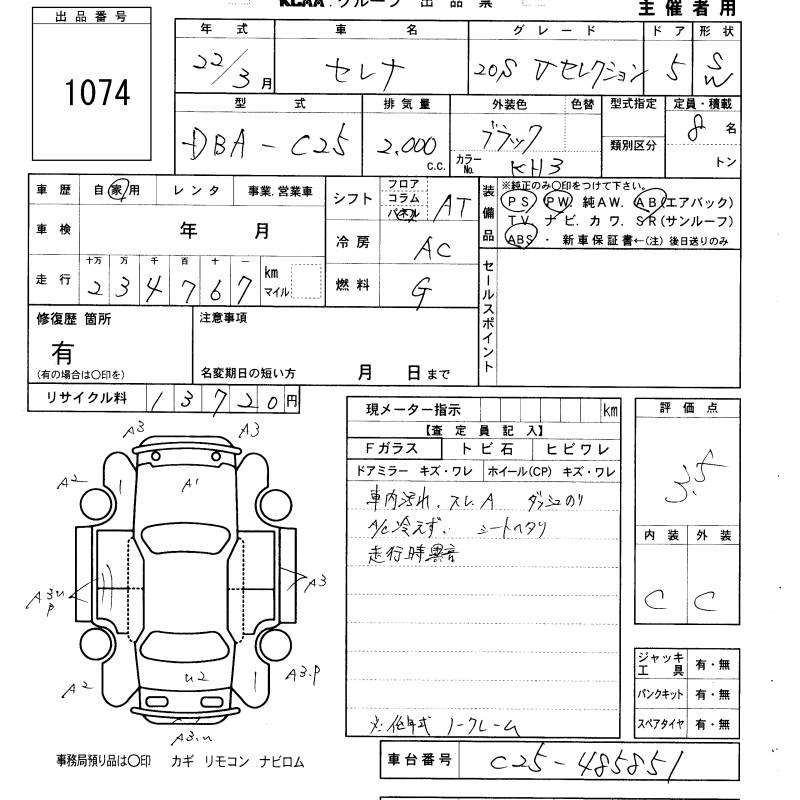 KCAA グループ 出品票 主催者用
出品番号
1074
年式 車名 グレード ドア 形状
22/3月 セレナ 20S Vセレクション 5 SW
型式 排気量 外装色 色替 型式指定 定員・積載
DBA-C25 2,000 c.c. ブラック 8名
類別区分
カラーNo. KH3 トン
車歴 自家用 レンタ 事業.営業車
車検 年 月
走行 十万 万 千 百 十 一 km マイル
2 3 4 7 6 7
シフト フロア コラム パネル AT
冷房 AC
燃料 G
装備品
※純正のみ○印をつけて下さい。
PS PW 純AW. AB(エアバック)
TV ナビ. カワ. SR(サンルーフ)
ABS ・ 新車保証書←(注) 後日送りのみ
セールスポイント
修復歴 箇所
有
(有の場合は○印を)
注意事項
名変期日の短い方 月 日まで
リサイクル料 13720円
現メーター指示 km
【査定員記入】
Fガラス トビ石 ヒビワレ
ドアミラー キズ・ワレ ホイール(CP) キズ・ワレ
車内汚れ.スレ.A ダッシュのり
A/C冷えず. シートヘタリ
走行時異音
※低年式 ノークレーム
評価点
3.5
内装 外装
C C
A3 A3
A2 A1
A3 U P A3
A2 U2 A3.P
A3.U
ジャッキ工具 有・無
パンクキット 有・無
スペアタイヤ 有・無
事務局預り品は○印 カギ リモコン ナビロム
車台番号 C25-485851